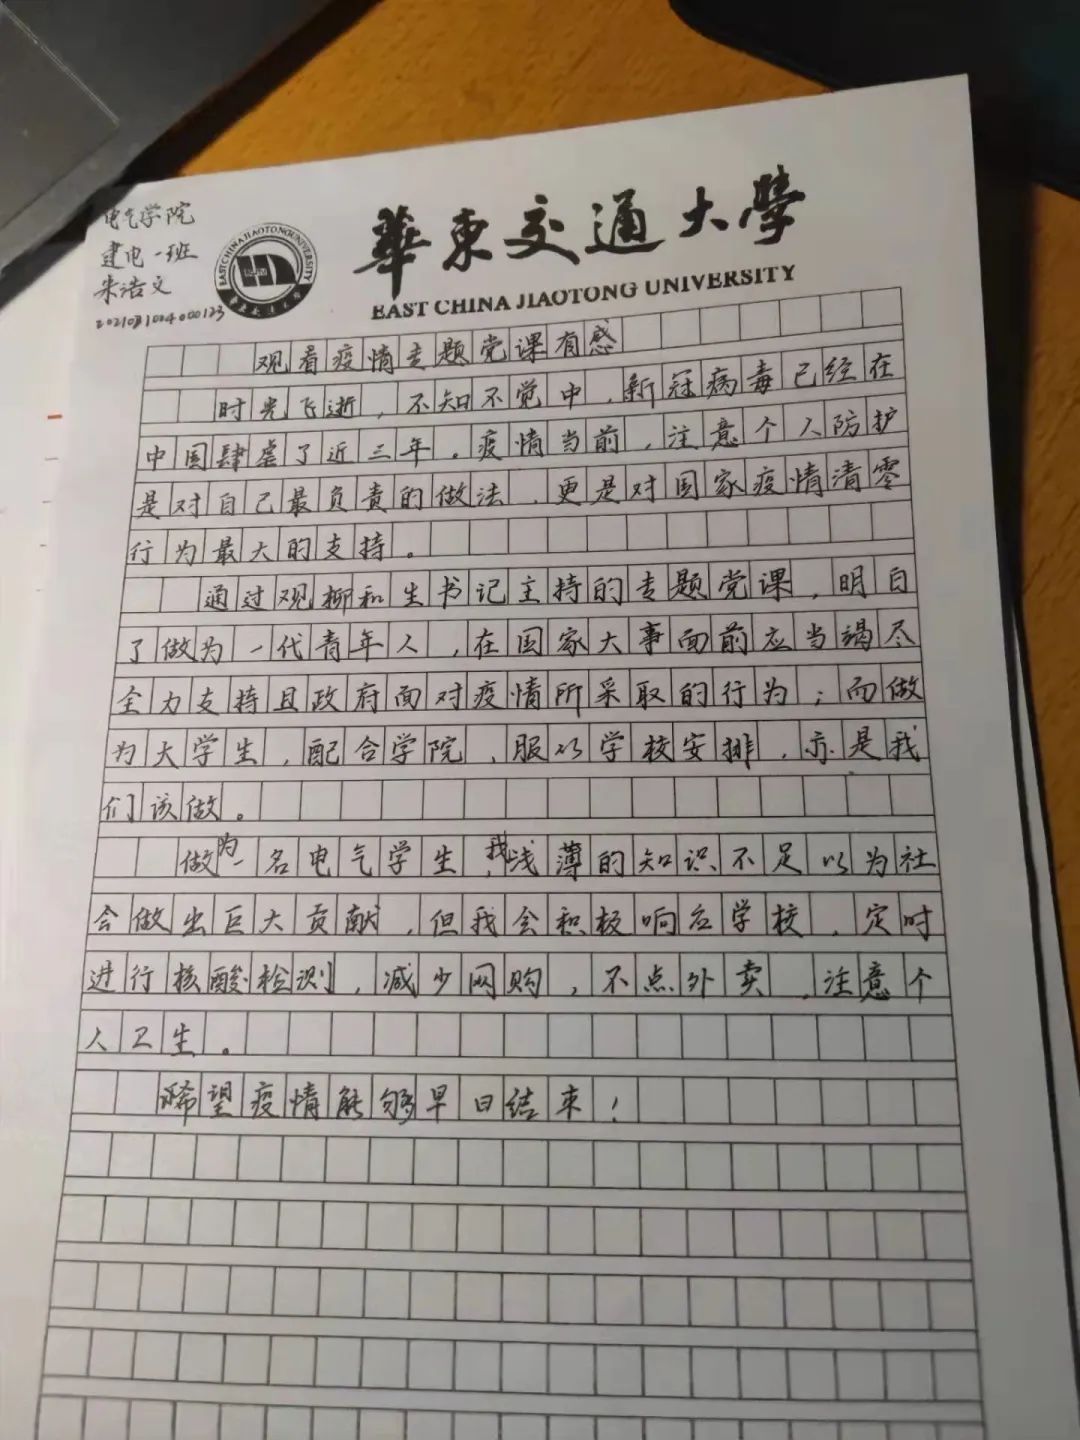 电气学院
建电一班
朱浩文
華東交通大學
EAST CHINA JIAOTONG UNIVERSITY
观看疫情专题党课有感
时光飞逝，不知不觉中，新冠病毒已经在
中国肆虐了近三年。疫情当前，注意个人防护
是对自己最负责的做法，更是对国家疫情清零
行为最大的支持。
通过观柳和生书记主持的专题党课，明白
了做为一代青年人，在国家大事面前应当竭尽
全力支持且政府面对疫情所采取的行为；而做
为大学生，配合学院、服从学校安排，亦是我
们该做。
做为一名电气学生，我浅薄的知识不足以为社
会做出巨大贡献，但我会积极响应学校，定时
进行核酸检测，减少网购，不点外卖，注意个
人卫生。
希望疫情能够早日结束！